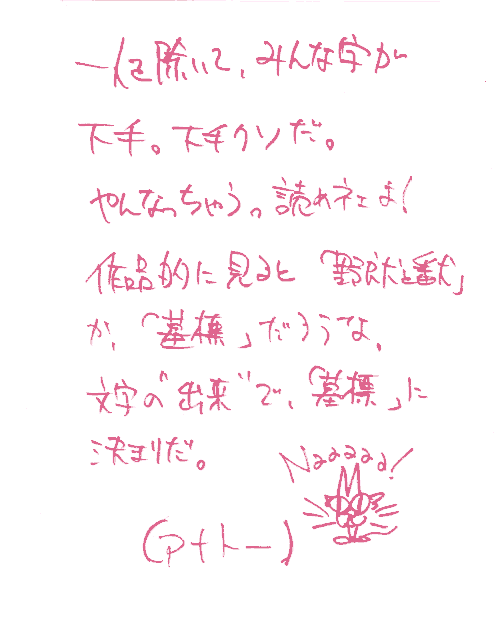 一人を除いて、みんな字が
下手。下手クソだ。
やんなっちゃう。読めネェよ!
作品的に見ると「野良犬と番犬」
か、「墓標」だろうな。
文字の"出来"で、「墓標」に
決まりだ。
Naaaaaa!
(アイトー)